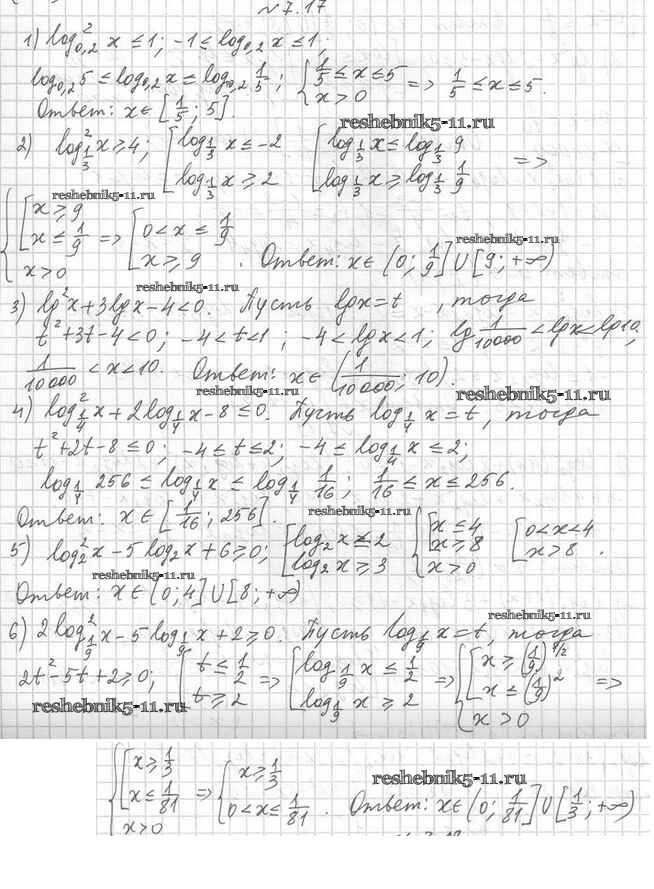 № 7.17
1) log²_{0,2} x ≤ 1; -1 ≤ log_{0,2} x ≤ 1;
log_{0,2} 5 ≤ log_{0,2} x ≤ log_{0,2} 1/5; { 1/5 ≤ x ≤ 5 x > 0 => 1/5 ≤ x ≤ 5.
Ответ: x ∈ [1/5; 5].
reshebnik5-11.ru
2) log²_{1/3} x ≥ 4; [ log_{1/3} x ≤ -2 log_{1/3} x ≥ 2 [ log_{1/3} x ≤ log_{1/3} 9 log_{1/3} x ≥ log_{1/3} 1/9 =>
reshebnik5-11.ru
{ [ x ≥ 9 x ≤ 1/9 x > 0 => [ 0 < x ≤ 1/9 x ≥ 9 . Ответ: x ∈ (0; 1/9] ∪ [9; +∞)
reshebnik5-11.ru
reshebnik5-11.ru
3) lg²x + 3lgx - 4 < 0. Пусть lgx = t , тогда
t² + 3t - 4 < 0; -4 < t < 1 ; -4 < lgx < 1; lg 1/10000 < lgx < lg10,
1/10000 < x < 10. Ответ: x ∈ (1/10000; 10).
reshebnik5-11.ru
reshebnik5-11.ru
4) log²_{1/4} x + 2log_{1/4} x - 8 ≤ 0. Пусть log_{1/4} x = t, тогда
t² + 2t - 8 ≤ 0; -4 ≤ t ≤ 2; -4 ≤ log_{1/4} x ≤ 2;
log_{1/4} 256 ≤ log_{1/4} x ≤ log_{1/4} 1/16; 1/16 ≤ x ≤ 256.
Ответ: x ∈ [1/16; 256].
reshebnik5-11.ru
5) log²_2 x - 5 log_2 x + 6 ≥ 0; [ log_2 x ≤ 2 log_2 x ≥ 3 { [ x ≤ 4 x ≥ 8 x > 0 [ 0 < x < 4 x > 8 .
reshebnik5-11.ru
Ответ: x ∈ (0; 4] ∪ [8; +∞)
reshebnik5-11.ru
6) 2log²_{1/9} x - 5 log_{1/9} x + 2 ≥ 0. Пусть log_{1/9} x = t, тогда
2t² - 5t + 2 ≥ 0; [ t ≤ 1/2 t ≥ 2 => [ log_{1/9} x ≤ 1/2 log_{1/9} x ≥ 2 => { [ x ≥ (1/9)^{1/2} x ≤ (1/9)² x > 0 =>
reshebnik5-11.ru
{ [ x ≥ 1/3 x ≤ 1/81 x > 0 => { x ≥ 1/3 0 < x ≤ 1/81 . Ответ: x ∈ (0; 1/81] ∪ [1/3; +∞)
reshebnik5-11.ru